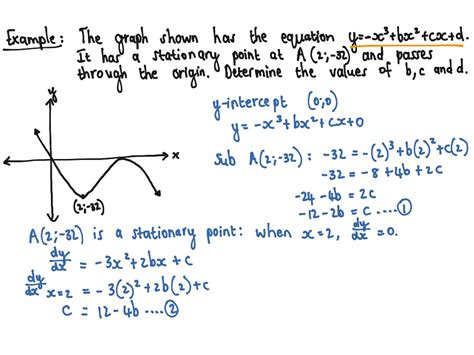 Example: The graph shown has the equation y=-x³+bx²+cx+d.
It has a stationary point at A(2;-32) and passes
through the origin. Determine the values of b, c and d.
y
x
(2;-32)
y-intercept (0;0)
y = -x³+bx²+cx+0
Sub A(2;-32): -32 = -(2)³+b(2)²+c(2)
-32 = -8+4b+2c
-24-4b = 2c
-12-2b = c ....①
A(2;-32) is a stationary point: when x=2, dy/dx=0.
dy/dx = -3x²+2bx+c
dy/dx x=2 = -3(2)²+2b(2)+c
c = 12-4b ....②